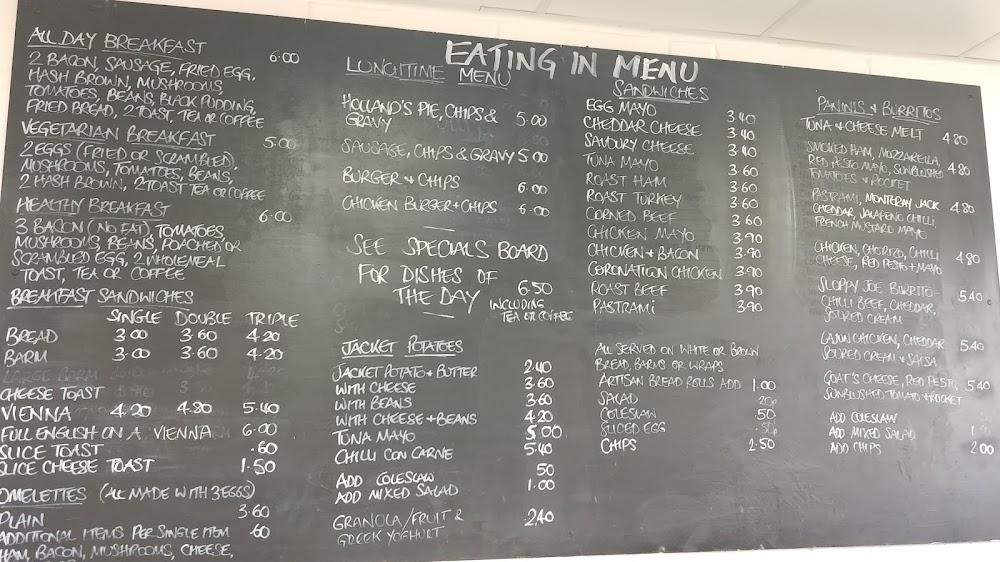 EATING IN MENU
ALL DAY BREAKFAST 6.00
2 BACON, SAUSAGE, FRIED EGG,
HASH BROWN, MUSHROOMS,
TOMATOES, BEANS, BLACK PUDDING,
FRIED BREAD, 2 TOAST, TEA OR COFFEE
VEGETARIAN BREAKFAST 5.00
2 EGGS (FRIED OR SCRAMBLED),
MUSHROOMS, TOMATOES, BEANS,
2 HASH BROWN, 2 TOAST TEA OR COFFEE
HEALTHY BREAKFAST 6.00
3 BACON (NO FAT), TOMATOES
MUSHROOMS, BEANS, POACHED OR
SCRAMBLED EGG, 2 WHOLEMEAL
TOAST, TEA OR COFFEE
BREAKFAST SANDWICHES
SINGLE DOUBLE TRIPLE
BREAD 3.00 3.60 4.20
BARM 3.00 3.60 4.20
LARGE BARM
CHEESE TOAST
VIENNA 4.20 4.80 5.40
FULL ENGLISH ON A VIENNA 6.00
SLICE TOAST .60
SLICE CHEESE TOAST 1.50
OMELETTES (ALL MADE WITH 3 EGGS)
PLAIN 3.60
ADDITIONAL ITEMS PER SINGLE ITEM .60
HAM, BACON, MUSHROOMS, CHEESE,
LUNCHTIME MENU
HOLLAND'S PIE, CHIPS &
GRAVY 5.00
SAUSAGE, CHIPS & GRAVY 5.00
BURGER + CHIPS 6.00
CHICKEN BURGER + CHIPS 6.00
SEE SPECIALS BOARD
FOR DISHES OF
THE DAY 6.50
INCLUDING
TEA OR COFFEE
JACKET POTATOES
JACKET POTATO + BUTTER 2.40
WITH CHEESE 3.60
WITH BEANS 3.60
WITH CHEESE + BEANS 4.20
TUNA MAYO 5.00
CHILLI CON CARNE 5.40
ADD COLESLAW 50
ADD MIXED SALAD 1.00
GRANOLA/FRUIT & 2.40
GREEK YOGHURT
SANDWICHES
EGG MAYO 3.40
CHEDDAR CHEESE 3.40
SAVOURY CHEESE 3.40
TUNA MAYO 3.60
ROAST HAM 3.60
ROAST TURKEY 3.60
CORNED BEEF 3.60
CHICKEN MAYO 3.90
CHICKEN + BACON 3.90
CORONATION CHICKEN 3.90
ROAST BEEF 3.90
PASTRAMI 3.90
ALL SERVED ON WHITE OR BROWN
BREAD, BARMS OR WRAPS
ARTISAN BREAD ROLLS ADD 1.00
SALAD 20p
COLESLAW .50
SLICED EGG
CHIPS 2.50
PANINIS & BURRITOS
TUNA & CHEESE MELT 4.80
SMOKED HAM, MOZZARELLA,
RED PESTO MAYO, SUNBLUSHED 4.80
TOMATOES + ROCKET
PASTRAMI, MONTERAY JACK 4.80
CHEDDAR, JALAPENO CHILLI,
FRENCH MUSTARD MAYO
CHICKEN, CHORIZO, CHILLI 4.80
CHEESE, RED PESTO + MAYO
SLOPPY JOE BURRITO- 5.40
CHILLI BEEF, CHEDDAR,
SOURED CREAM
CAJUN CHICKEN, CHEDDAR 5.40
SOURED CREAM & SALSA
GOAT'S CHEESE, RED PESTO, 5.40
SUNBLUSHED TOMATO + ROCKET
ADD COLESLAW
ADD MIXED SALAD
ADD CHIPS 2.00